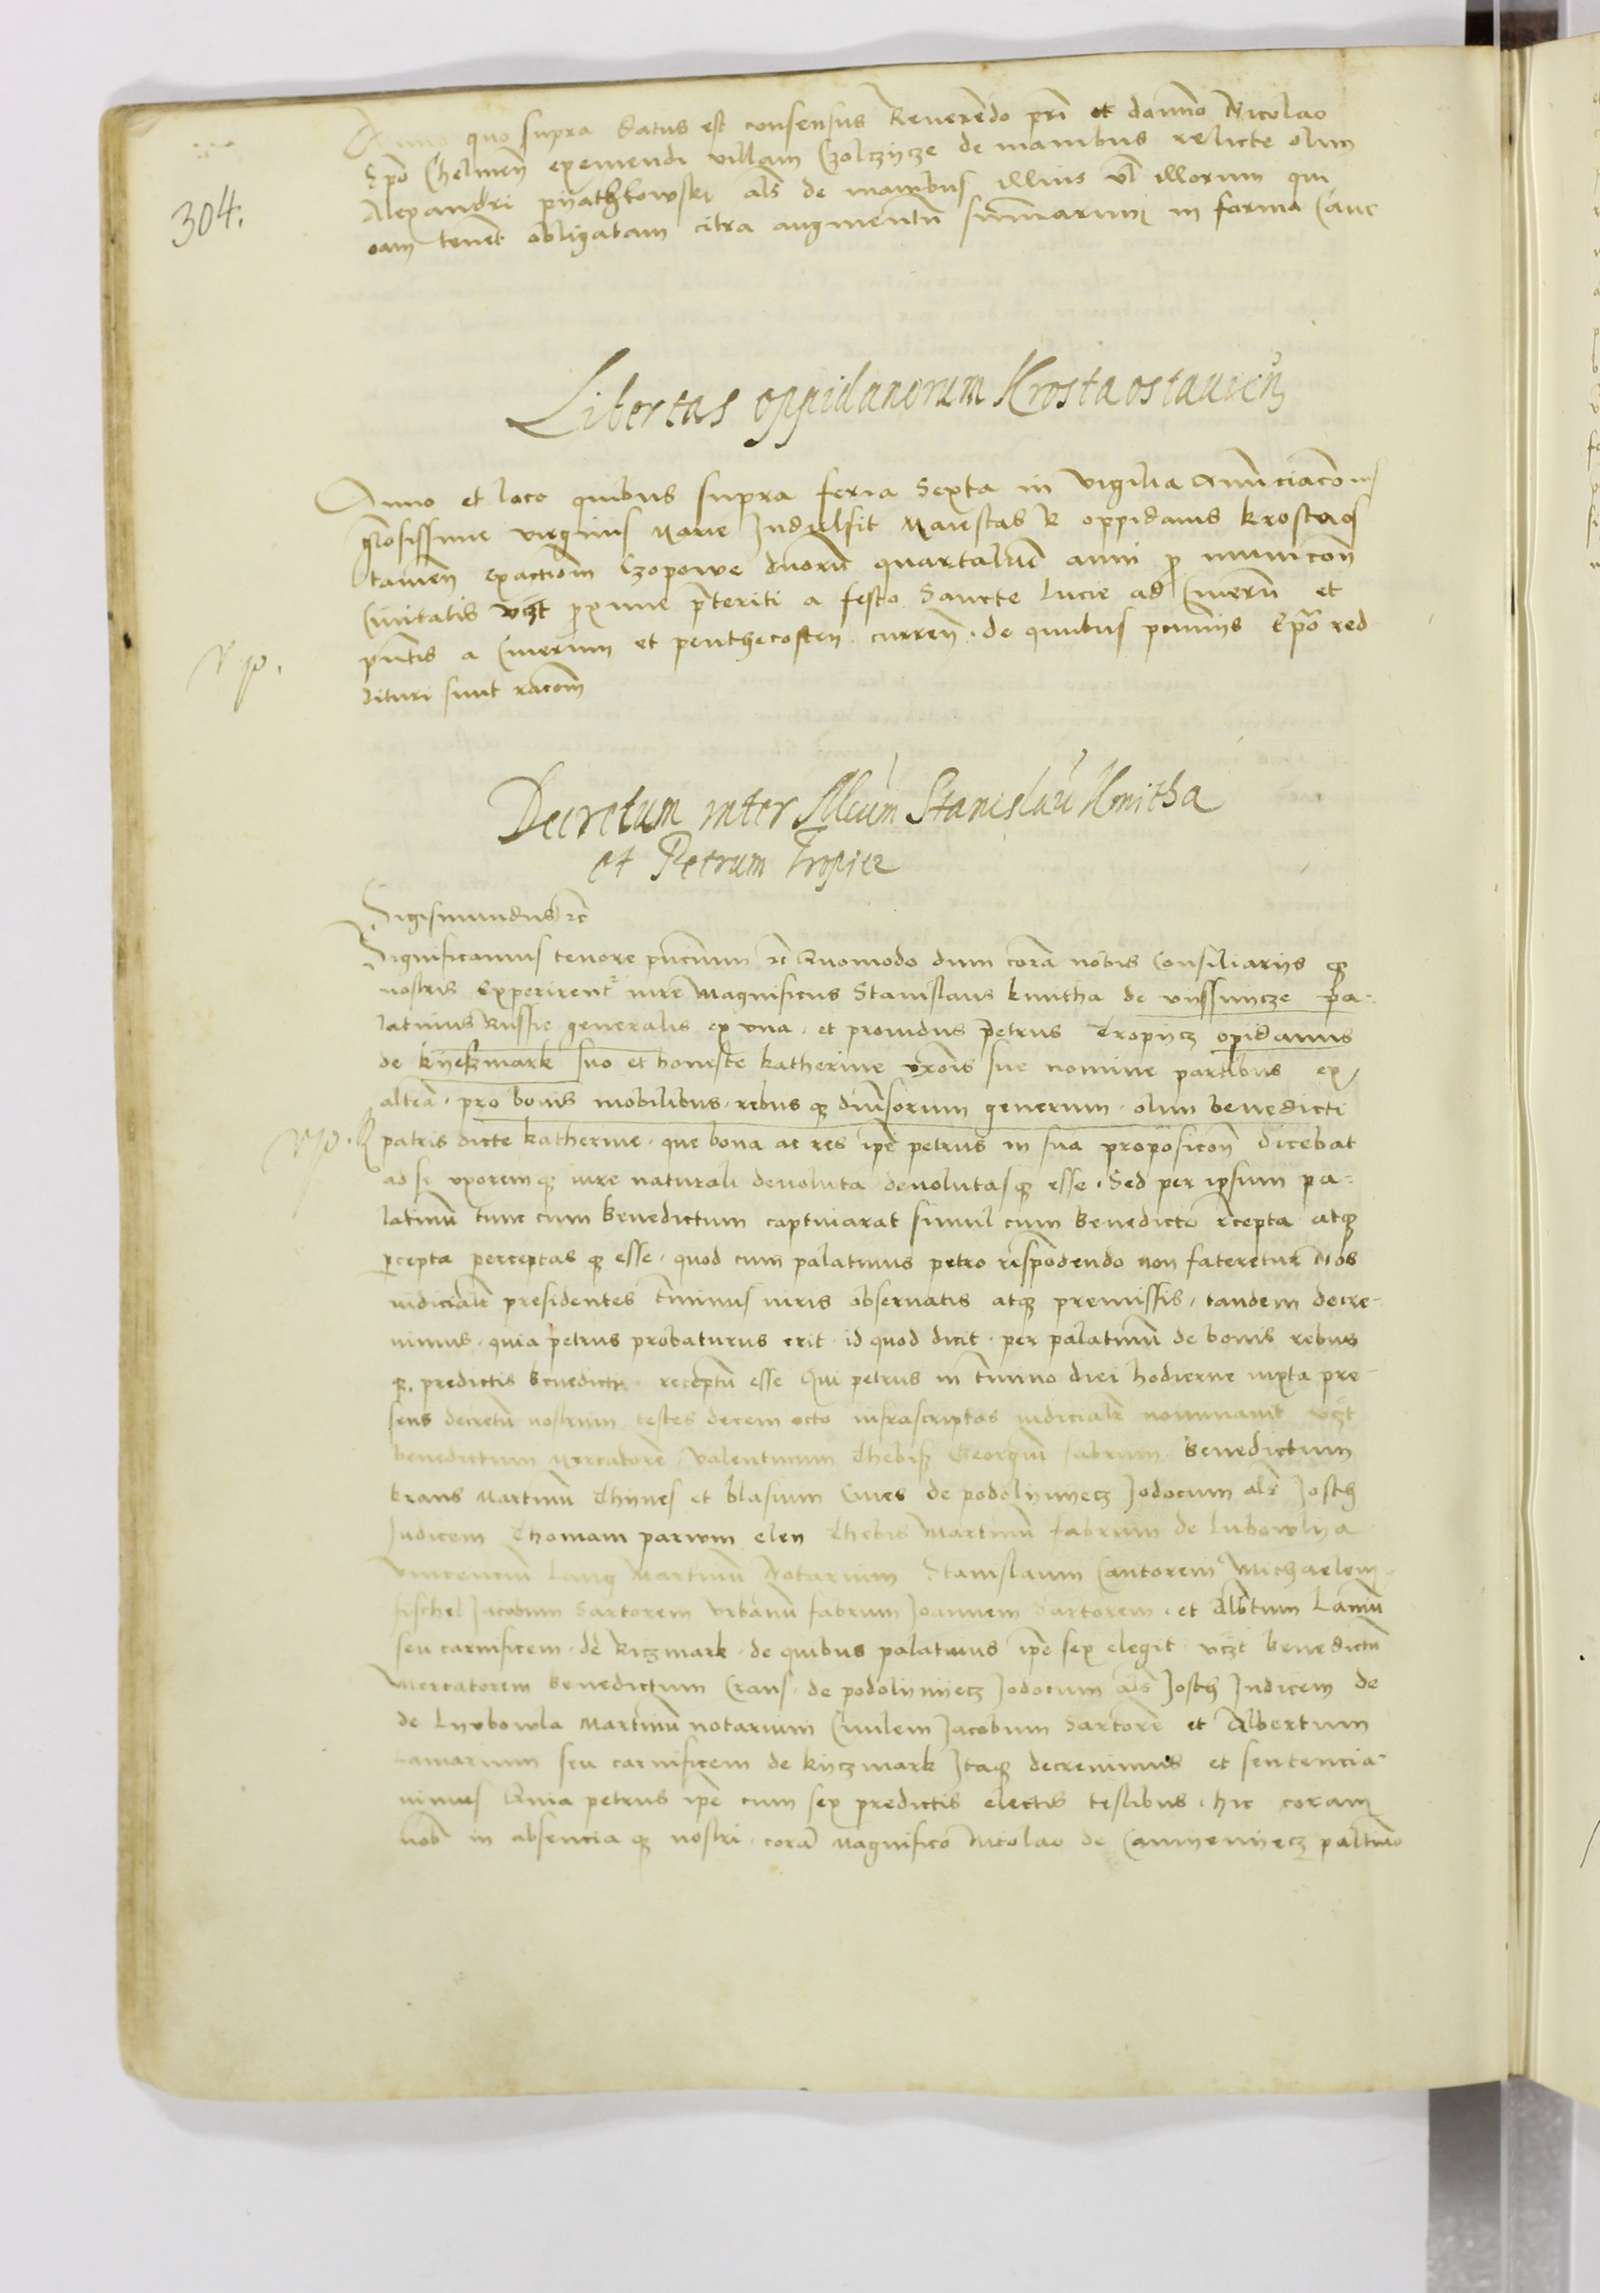 Anno quo supra datus est consensus Reuerendo pri et domino Nicolao
Epo Chelmen exemendi villam Czolczycze de manibus relicte olim
Alexandri pyathkowski als de manibus illius vl illorum qui
eam tenet obligatam citra augmentu summarum in forma Canc
304.
Libertas oppidanorum Krosta ostauien
Anno et loco quibus supra feria Sexta in vigilia Annunciacōnis
gtosissime virginis Marie Indulsit Maiestas R oppidanis krostaos
tauien exactiom Czopowe duoru quartaliu anni p municon
Ciuitatis vczt pxime pteriti a festo Sancte lucie ad Cinerū et
pntis a Cinerum et penthecosten curren de quibus pecuniis Epo red
dituri sunt racom
Decretum inter Mcum Stanislau Kmitha
et Petrum Tropicz
Sigismundus rc
Significamus tenore pncium rc Quomodo dum cora nobis Consiliarijs q
nostris Experirent iure Magnificus Stanislaus kmitha de vyssnicze pa-
latinus Russie generalis ex vna et prouidus petrus Tropycz opidanus
de kyeszmark suo et honeste katherine vxoris sue nomine partibus ex
altra pro bonis mobilibus rebus q diuisorum generum olim benedicti
patris dicte katherine que bona ac res ipe petrus in sua proposicon dicebat
ad se vxorem q iure naturali deuoluta deuolutas q esse Sed per ipsum pa-
latinu tunc cum benedictum captiuarat simul cum benedicto rcepta atq
pcepta perceptas q esse quod cum palatinus petro respondendo non fateretur Nos
iudicialr presidentes tminus iuris obseruatis atq premissis tandem decre-
uimus quia petrus probaturus erit id quod dicit per palatinu de bonis rebus
q predictis benedicti receptu esse Qui petrus in tmino diei hodierne iuxta pre-
sens decretu nostrum testes decem octo infrascriptos iudicialr nominauit vczt
benedictum Mercatore valentinum Thebis Georgiu fabrum benedictum
krans Martinu Thynes et blasium Ciues de podolynyecz Jodocum als Josth
Judicem Thomam paruum elen Thebis Martinu fabrum de lubowlya
vincenciu lang Martinu Notarium Stanislaum Cantorem Michaelem
fischel Jacobum Sartorem vrbanu fabrum Joannem Sartorem et Albtum Laniu
seu carnificem de kiczmark de quibus palatinus ipe sex elegit vczt benedictu
Mercatorem benedictum Crans de podolynyecz Jodocum als Josth Judicem de
de Lyubowla Martinu notarium Ciuilem Jacobum Sartore et Albertum
Laniarium seu carnificem de kyczmark Itaq decreuimus et sentencia-
uimus Quia petrus ipe cum sex predictis electis testibus hic coram
nob in absencia q nostri cora Magnifico Nicolao de Camyenyecz paltino